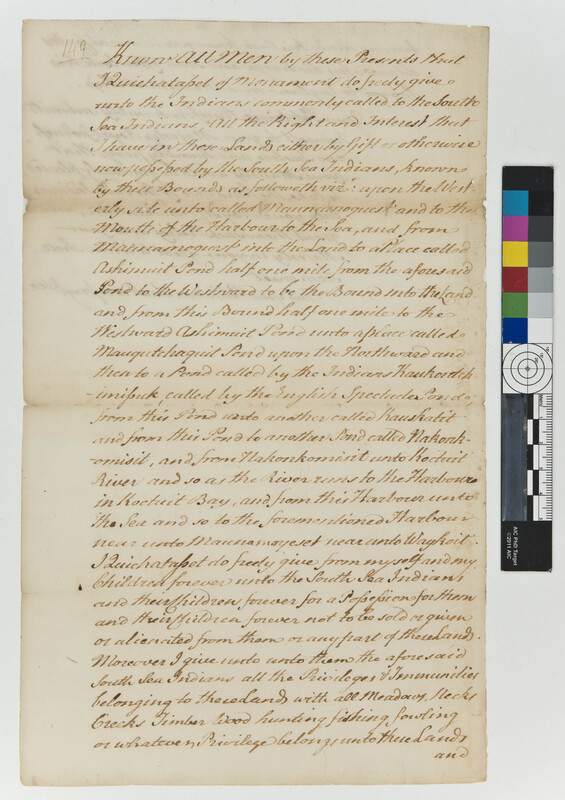 149
Know All Men by these Presents that
I Quichatasset of Monament do freely give
unto the Indians commonly called to the South
Sea Indians All the Right and Interest that
I have in these Lands either by Gift or otherwise
now possessed by the South Sea Indians, known
by these Bounds as followeth viz:t upon the West
erly side unto called Maunamoquest and to the
Mouth of the Harbour to the Sea, and from
Maunamoquest into the Land to a Place called
Ashimuit Pond half one mile from the aforesaid
Pond to the Westward to be the Bound into the Land
and from this Bound half one mile to the
Westward Ashimuit Pond unto a place called
Mauqutchaquit Pond upon the Northward and
then to a Pond called by the Indians
-imissuk, called by the English Spectcle Pond &
from this Pond unto another called Kauskatit
and from this Pond to another Pond called Nakonk
-omisit, and from Nakonkomisit unto Koctuit
River and so as the River runs to the Harbour
in Koctuit Bay, and from this Harbour unto
the Sea and so to the forementioned Harbour
near unto Maunamoyeset near unto Wayhoit.
I Quichatasset do freely give from myself and my
Children forever unto the South Sea Indians
and their Children forever for a Possession for them
and their Children forever not to be sold or given
or alienated from them or any part of these Lands.
Moreover I give unto unto them the aforesaid
South Sea Indians all the Privileges & Immunities
belonging to these Lands with all Meadows, Necks
Creeks Timber Wood hunting fishing fowling
or whatever Privilege belongs unto these Lands
and
AIC PhD Target
©2011 AIC